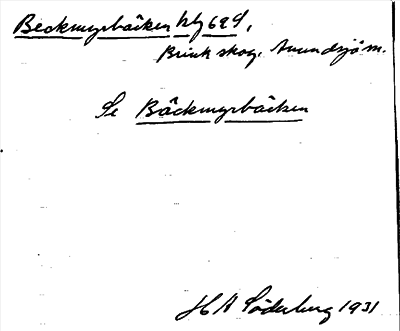 Beckmyrbäcken hg 629,
Brink skog. Anundsjö sn.
Se Bäckmyrbäcken
H A Söderberg 1931